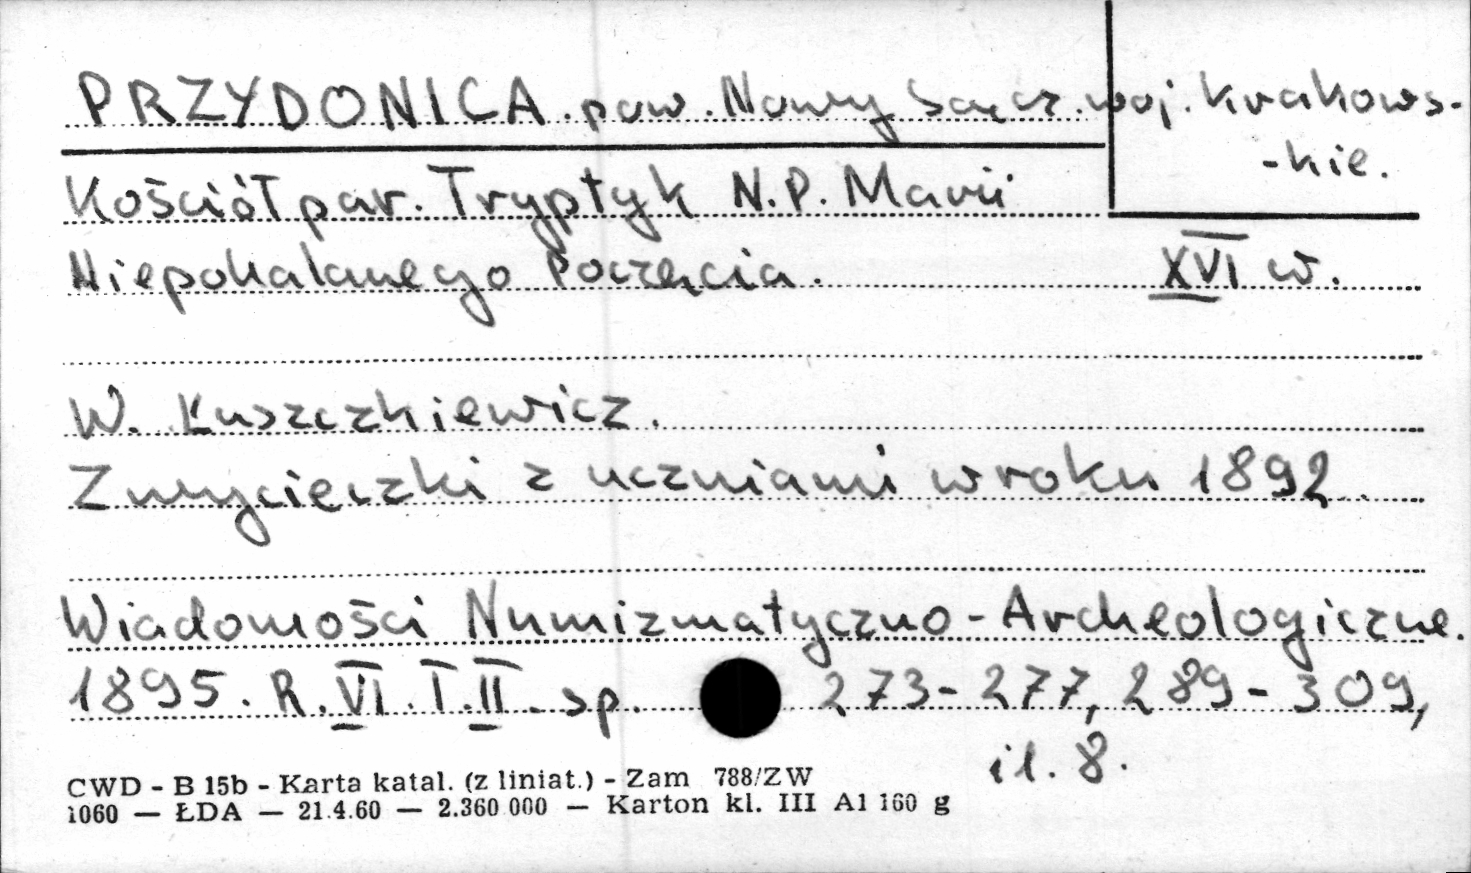 PRZYDONICA. pow. Nowy Sącz. woj. Krakows-
-kie.
Kościół par. Tryptyk N.P. Marii
Niepokalanego Poczęcia. XVI w.
W. Łuszczkiewicz.
Z wycieczki z uczniami w roku 1892.
Wiadomości Numizmatyczno-Archeologiczne.
1895. R. VI. T. II. sp. 273-277, 289-309,
il. 8.
CWD - B 15b - Karta katal. (z liniat.) - Zam 788/ZW
1060 — ŁDA — 21.4.60 — 2.360 000 — Karton kl. III A1 160 g